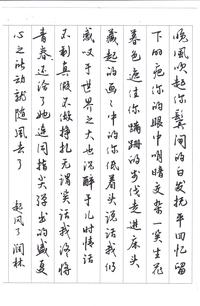 晚风吹起你鬓间的白发抚平回忆留
下的疤你的眼中明暗交杂一笑生花
暮色遮住你蹒跚的步伐走进床头
藏起的画々中的你低着头说话我仍
感叹于世界之大也沉醉于儿时情话
不剩真假不做挣扎无谓笑话我终将
青春还给了她连同指尖弹出的盛夏
心之所动就随风去了 起风了 润林